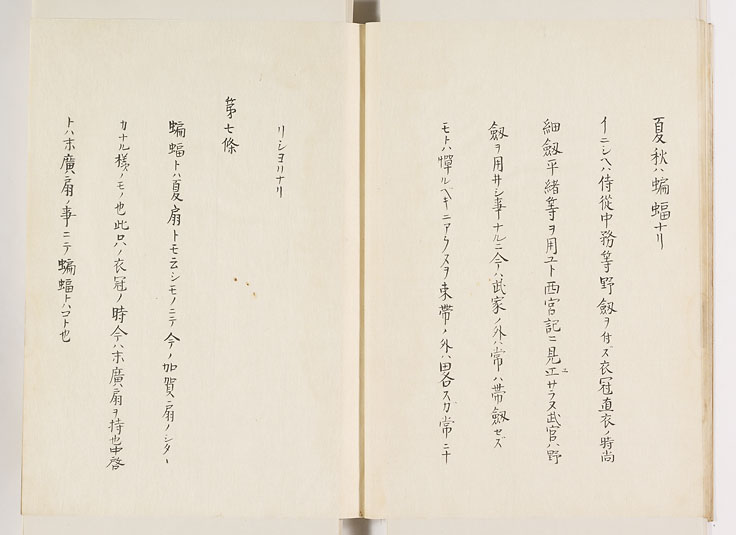 夏秋ハ蝙蝠ナリ
イニシヘハ侍從中務等野劔ヲ付ズ衣冠直衣ノ時尚
細劔平緒等ヲ用ユト西宮記ニ見ニサラヌ武官ハ野
劔ヲ用井シ事ナルニ今ハ武家ノ外ハ常ハ帶劔セズ
モトハ憚ルベキニアラスヲ束帶ノ外ハ畧スガ常ニナ
リシヨリナリ
第七條
蝙蝠トハ夏扇トモ云シモノニテ今ノ加賀扇ノシタ
カナル樣ノモノ也此ロハノ衣冠ノ時今ハ末廣扇ヲ持也中啓
トハ末廣扇ノ事ニテ蝙蝠トハコト也